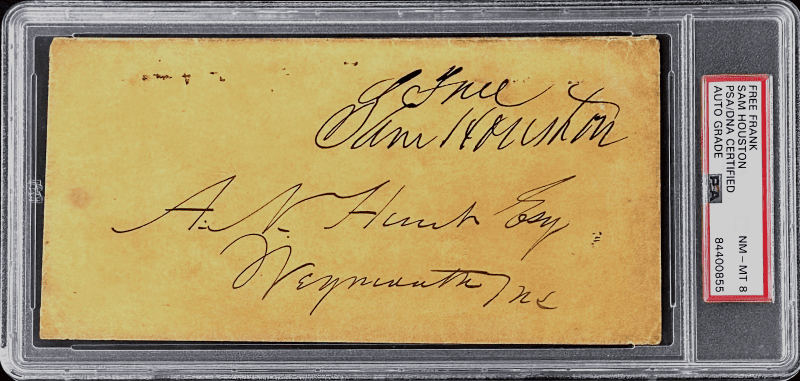 Free
Sam Houston
A. N. Hunt Esq
Weymouth Ms
FREE FRANK
SAM HOUSTON
PSA/DNA CERTIFIED
AUTO GRADE
PSA
NM - MT 8
84400855